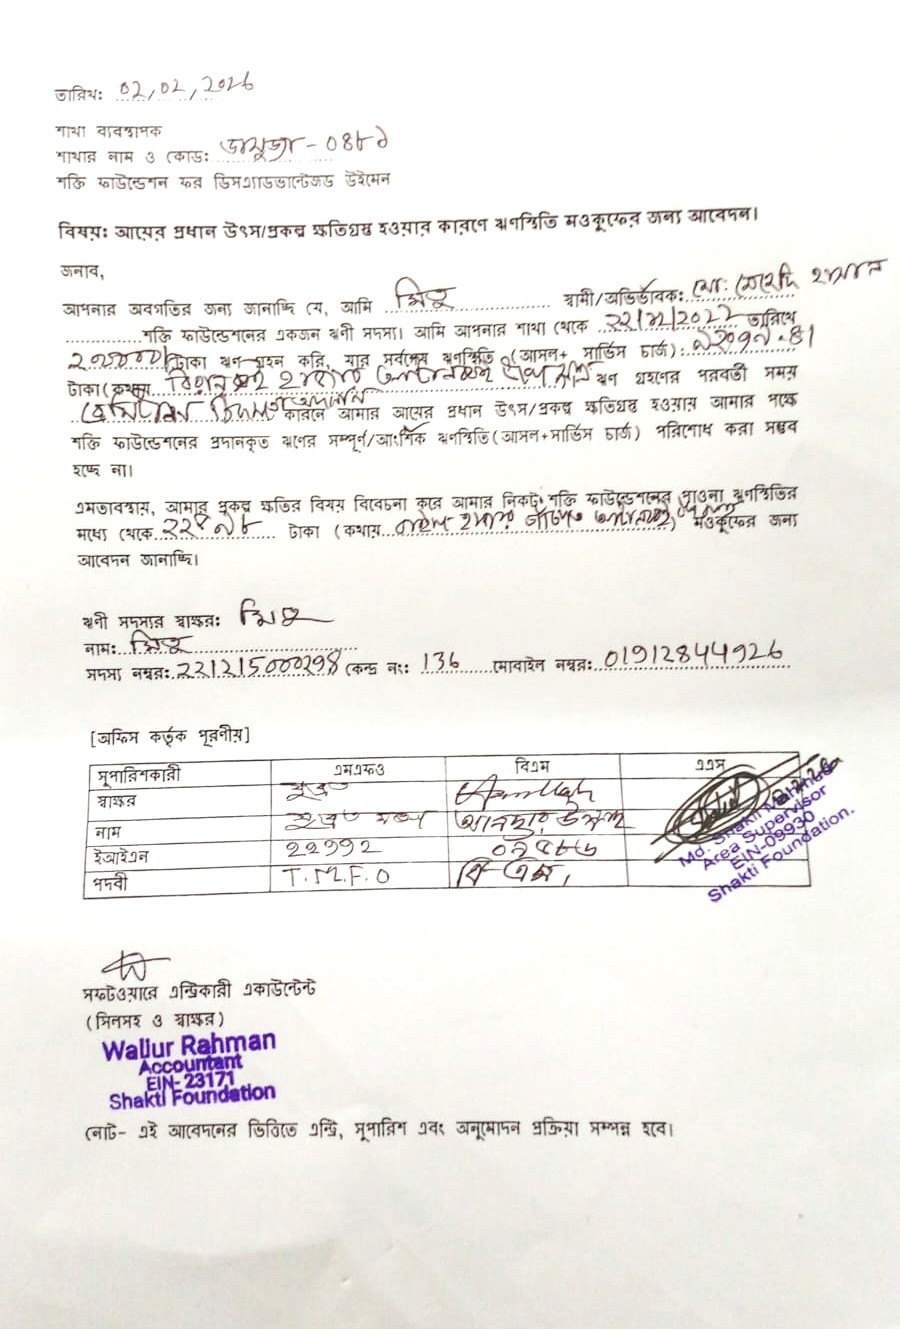 তারিখ: 02,02,2026
শাখা ব্যবস্থাপক
শাখার নাম ও কোড: - 0৪৮৯
শক্তি ফাউন্ডেশন ফর ডিসএ্যাডভান্টেজড উইমেন
বিষয়: আয়ের প্রধান উৎস/প্রকল্প ক্ষতিগ্রস্ত হওয়ার কারণে ঋণস্থিতি মওকুফের জন্য আবেদন।
জনাব,
আপনার অবগতির জন্য জানাচ্ছি যে, আমি মিতু স্বামী/অভিভাবক: মো: মেহেদি হাসান
শক্তি ফাউন্ডেশনের একজন ঋণী সদস্য। আমি আপনার শাখা থেকে তারিখে
টাকা ঋণ গ্রহন করি, যার সর্বশেষ ঋণস্থিতি (আসল+ সার্ভিস চার্জ) :
টাকা (কথায় হাজার ঋণ গ্রহণের পরবর্তী সময়
কারনে আমার আয়ের প্রধান উৎস/প্রকল্প ক্ষতিগ্রস্ত হওয়ায় আমার পক্ষে
শক্তি ফাউন্ডেশনের প্রদানকৃত ঋণের সম্পূর্ণ/আংশিক ঋণস্থিতি (আসল+সার্ভিস চার্জ) পরিশোধ করা সম্ভব
হচ্ছে না।
এমতাবস্থায়, আমার প্রকল্প ক্ষতির বিষয় বিবেচনা করে আমার নিকট শক্তি ফাউন্ডেশনের পাওনা ঋণস্থিতির
মধ্যে থেকে টাকা (কথায় হাজার মওকুফের জন্য
আবেদন জানাচ্ছি।
ঋণী সদস্যর স্বাক্ষর: মিতু
নাম: মিতু
সদস্য নম্বর: 221215000298 কেন্দ্র নং: 136 মোবাইল নম্বর: 01912844926
[অফিস কর্তৃক পূরণীয়]
সুপারিশকারী এমএফও বিএম এএস
স্বাক্ষর
নাম
ইআইএন 22992
পদবী T.M.F.O বি এম,
Md. Shakil
Area Supervisor
EIN-09930
Shakti Foundation.
সফটওয়্যারে এন্ট্রিকারী একাউন্টেন্ট
(সিলসহ ও স্বাক্ষর)
Waliur Rahman
Accountant
EIN- 23171
Shakti Foundation
নোট- এই আবেদনের ভিত্তিতে এন্ট্রি, সুপারিশ এবং অনুমোদন প্রক্রিয়া সম্পন্ন হবে।